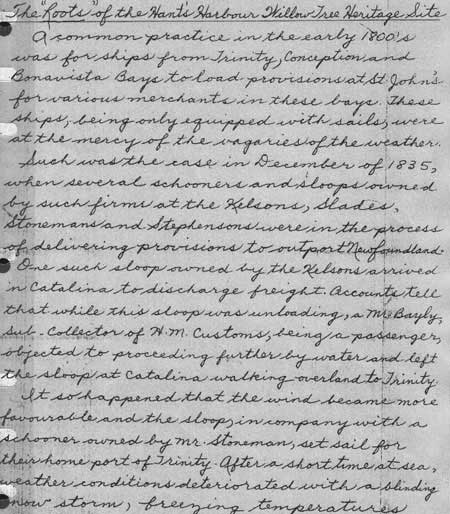 The "Roots" of the Hant's Harbour Willow Tree Heritage Site
A common practice in the early 1800's
was for ships from Trinity, Conception and
Bonavista Bays to load provisions at St. John's
for various merchants in these bays. These
ships, being only equipped with sails, were
at the mercy of the vagaries of the weather.
Such was the case in December of 1835,
when several schooners and sloops owned
by such firms at the Kelsons, Slades,
Stonemans and Stephensons were in the process
of delivering provisions to outport Newfoundland.
One such sloop owned by the Kelsons arrived
in Catalina to discharge freight. Accounts tell
that while this sloop was unloading, a Mr. Bayly,
sub-Collector of H.M. Customs, being a passenger,
objected to proceeding further by water and left
the sloop at Catalina walking overland to Trinity.
It so happened that the wind became more
favourable and the sloop, in company with a
schooner owned by Mr. Stoneman, set sail for
their home port of Trinity. After a short time at sea,
weather conditions deteriorated with a blinding
snow storm, freezing temperatures